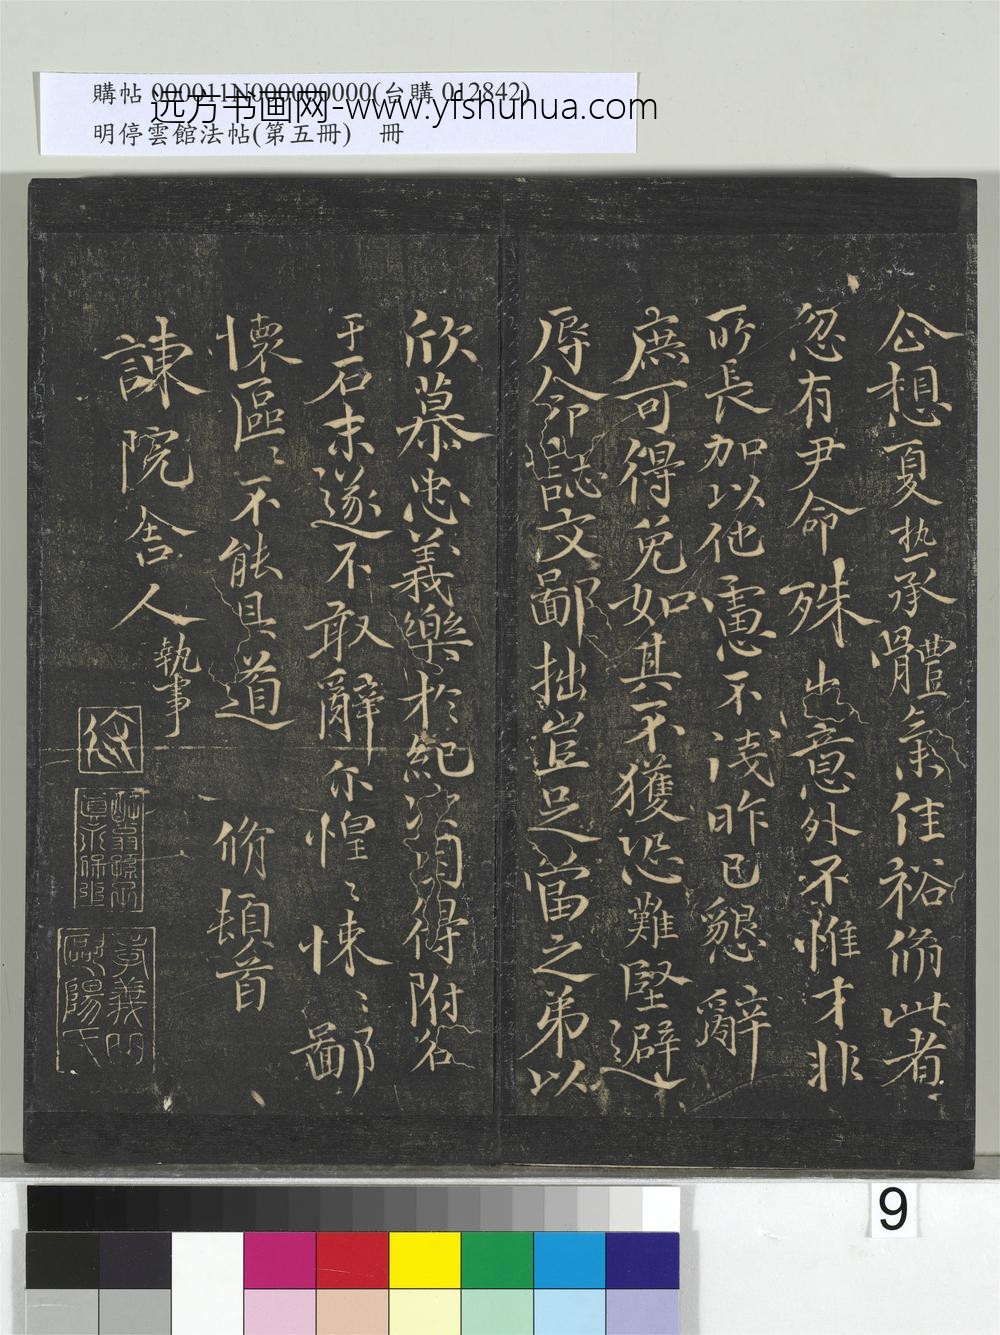 購帖 000011N000000000(台購 012842)
远方书画网-www.yfshuhua.com
明停雲館法帖(第五冊) 冊
公想夏熱承體氣佳裕脩此者
忽有尹命殊出意外不惟才非
所長加以他慮不淺昨已懇辭
庶可得免如其不獲恐難堅避
辱命誌文鄙拙豈足當之弟以
欣慕忠義樂於紀次因得附名
于石末遂不敢辭尔惶〻悚〻鄙
懷區〻不能具道 脩頓首
諫院舍人執事
六一
歐陽氏
9